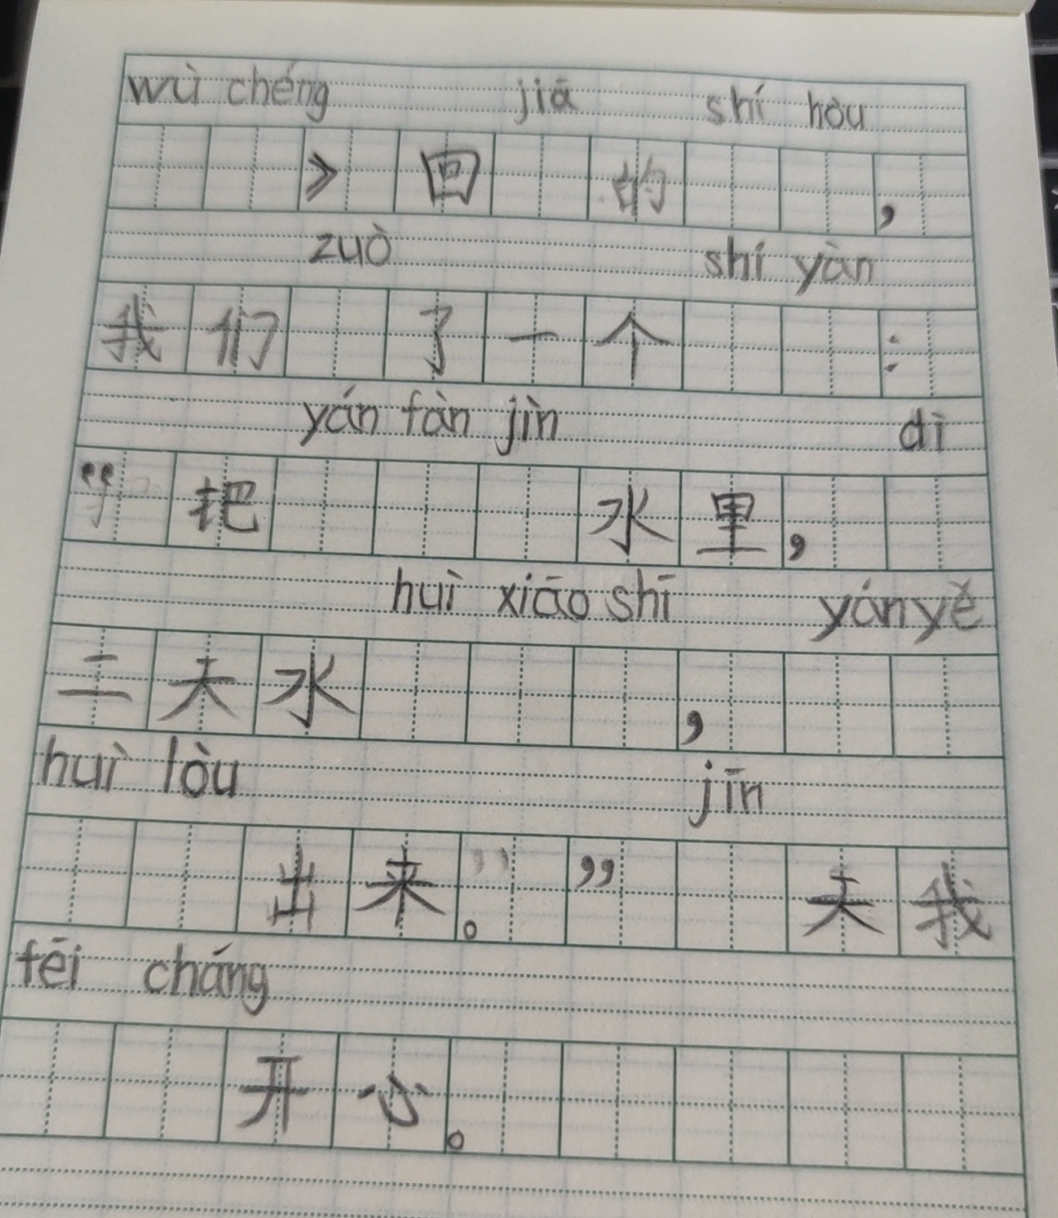 wù chéng jiā shí hòu
》回的，
zuò shí yàn
我们了一个：
yán fàn jìn dì
“把水里，
huì xiāo shī yán yě
二天水，
huì lòu jīn
出来。”天我
fēi cháng
开心。